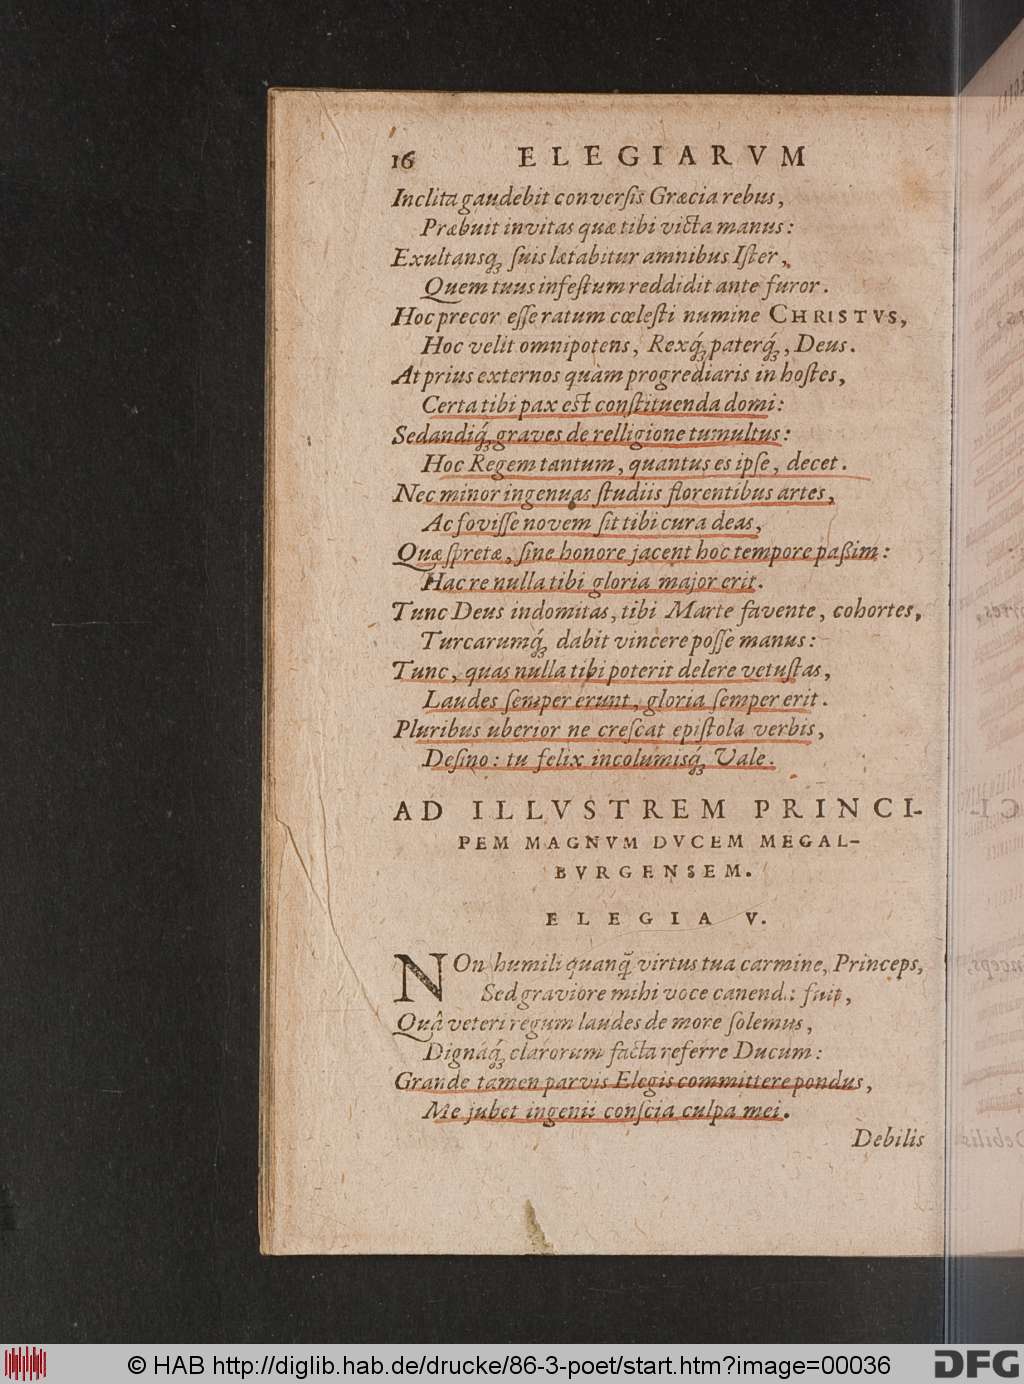 16 ELEGIARVM
Inclita gaudebit conversis Græcia rebus,
Præbuit invitas quæ tibi victa manus:
Exultansq́ꝫ suis lætabitur amnibus Ister,
Quem tuus infestum reddidit ante furor.
Hoc precor esse ratum cœlesti numine CHRISTVS,
Hoc velit omnipotens, Rexq́ꝫ paterq́ꝫ, Deus.
At prius externos quàm progrediaris in hostes,
Certa tibi pax est constituenda domi:
Sedandiq́ꝫ graves de relligione tumultus:
Hoc Regem tantum, quantus es ipse, decet.
Nec minor ingenuas studiis florentibus artes,
Ac fovisse novem sit tibi cura deas,
Quæ spretæ, sine honore jacent hoc tempore paßim:
Hac re nulla tibi gloria major erit.
Tunc Deus indomitas, tibi Marte favente, cohortes,
Turcarumq́ꝫ dabit vincere posse manus:
Tunc, quas nulla tibi poterit delere vetustas,
Laudes semper erunt, gloria semper erit.
Pluribus uberior ne crescat epistola verbis,
Desino: tu felix incolumisq́ꝫ Vale.
AD ILLVSTREM PRINCI-
PEM MAGNVM DVCEM MEGAL-
BVRGENSEM.
ELEGIA V.
NOn humili quanq̃ virtus tua carmine, Princeps,
Sed graviore mihi voce canenda fuit,
Quâ veteri regum laudes de more solemus,
Dignáq́ꝫ clarorum facta referre Ducum:
Grande tamen parvis Elegis committere pondus,
Me jubet ingenii conscia culpa mei.
Debilis
© HAB http://diglib.hab.de/drucke/86-3-poet/start.htm?image=00036
DFG